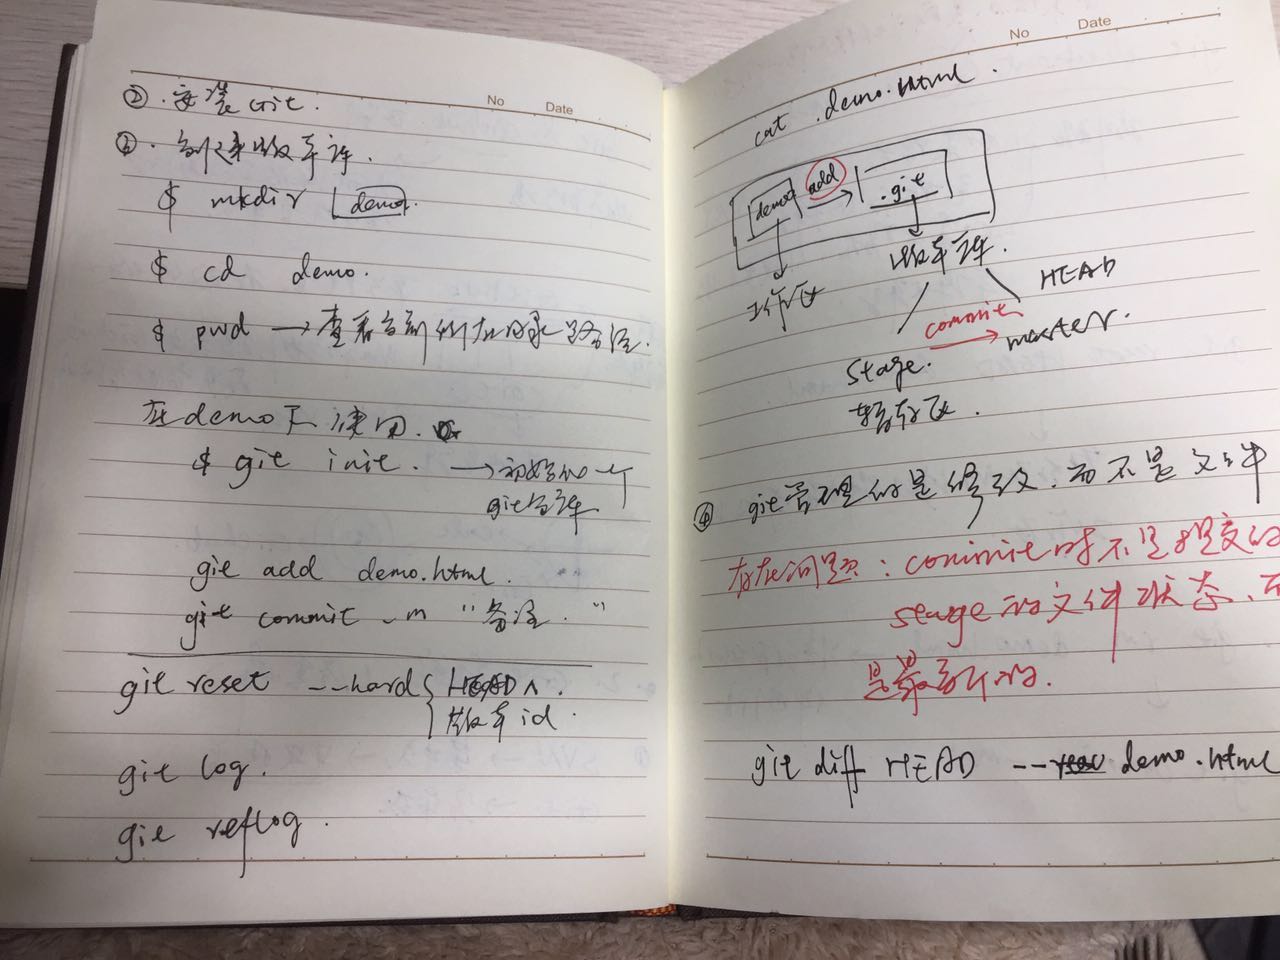 No Date
②. 安装Git.
③. 创建版本库.
$ mkdir demo.
$ cd demo.
$ pwd → 查看当前所在目录路径.
在demo下使用.
$ git init. → 初始化一个
git仓库
git add demo.html.
git commit -m "备注."
git reset --hard { HEAD^.
版本id.
git log.
git reflog.
No Date
cat demo.html.
demo add → .git
工作区
版本库.
HEAD
commit
stage. → master.
暂存区.
④ git管理的是修改.而不是文件
存在问题：commit时不是提交的
stage的文件状态,而
是最新的.
git diff HEAD -- demo.html